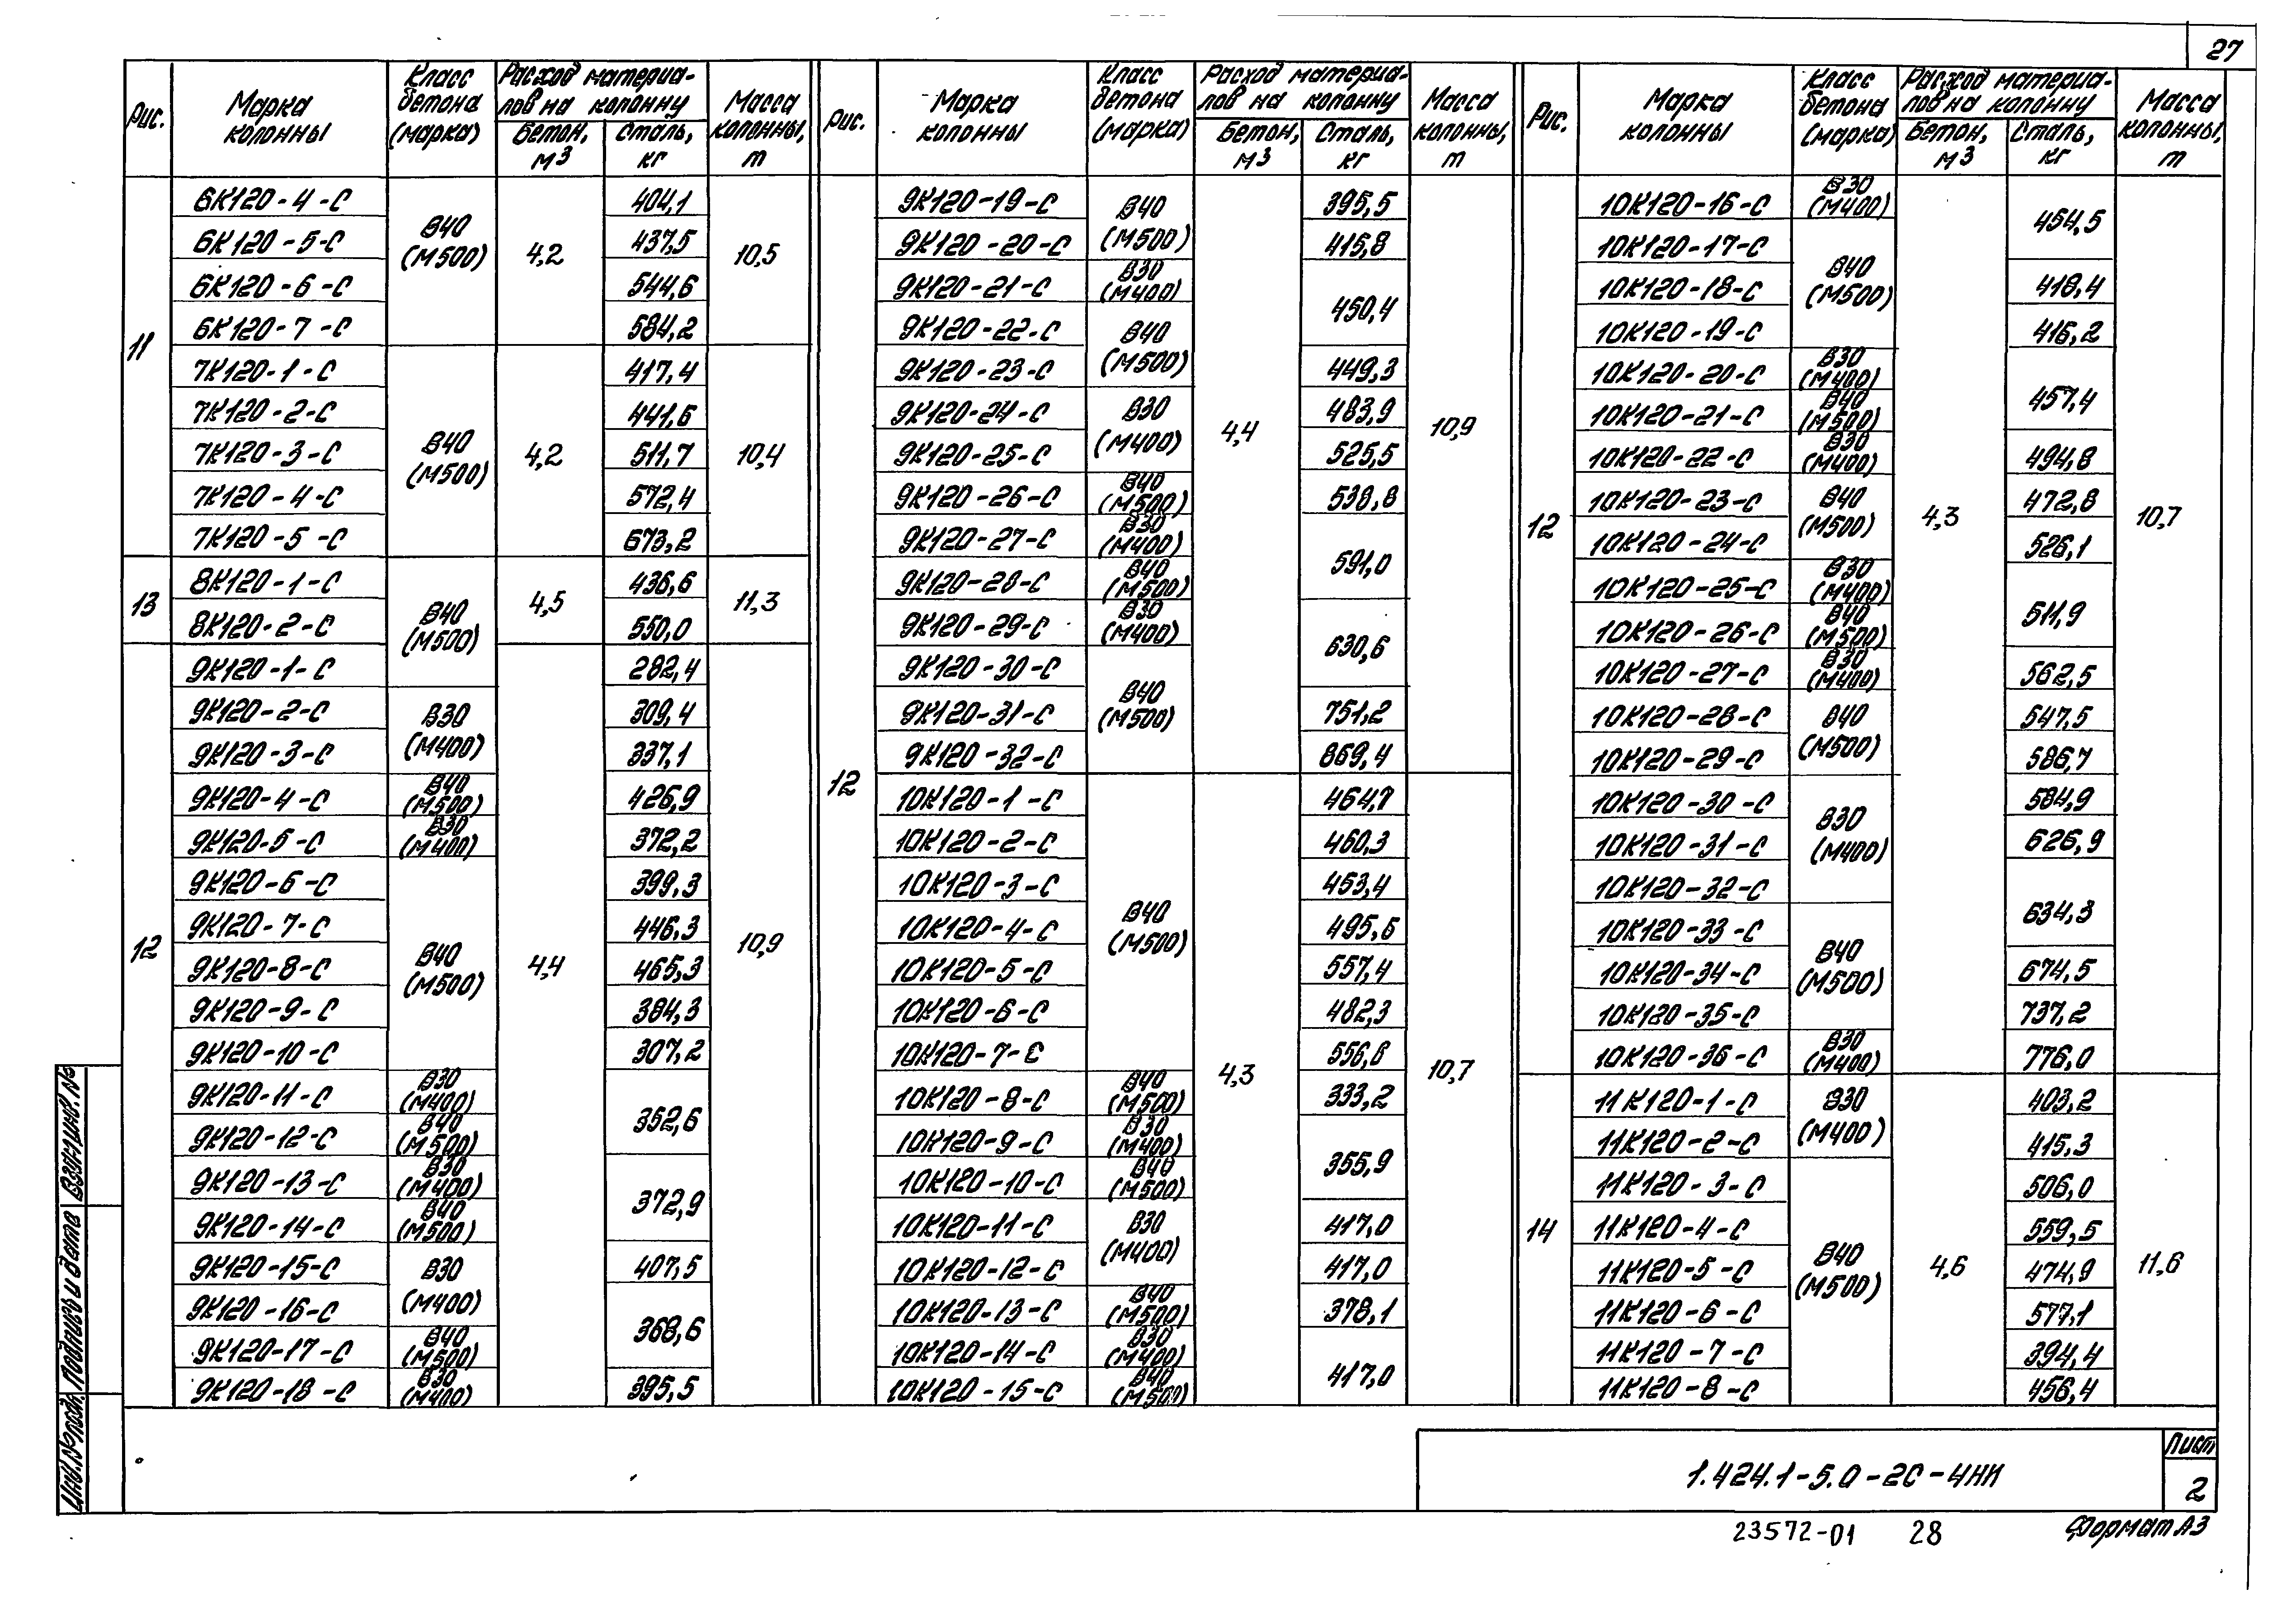 27
Рис. Марка колонны Класс бетона (марка) Расход материалов на колонну Бетон, м3 Сталь, кг Масса колонны, т
11
6К120-4-С В40 (М500) 4,2 404,1 10,5
6К120-5-С 437,5
6К120-6-С 544,6
6К120-7-С 584,2
7К120-1-С В40 (М500) 4,2 417,4 10,4
7К120-2-С 441,6
7К120-3-С 511,7
7К120-4-С 572,4
7К120-5-С 673,2
13
8К120-1-С В40 (М500) 4,5 436,6 11,3
8К120-2-С 550,0
12
9К120-1-С 4,4 282,4 10,9
9К120-2-С В30 (М400) 309,4
9К120-3-С 337,1
9К120-4-С В40 (М500) 426,9
9К120-5-С В30 (М400) 372,2
9К120-6-С В40 (М500) 399,3
9К120-7-С 446,3
9К120-8-С 465,3
9К120-9-С 384,3
9К120-10-С 307,2
9К120-11-С В30 (М400) 352,6
9К120-12-С В40 (М500)
9К120-13-С В30 (М400) 372,9
9К120-14-С В40 (М500)
9К120-15-С В30 (М400) 407,5
9К120-16-С 368,6
9К120-17-С В40 (М500)
9К120-18-С В30 (М400) 395,5
Рис. Марка колонны Класс бетона (марка) Расход материалов на колонну Бетон, м3 Сталь, кг Масса колонны, т
12
9К120-19-С В40 (М500) 4,4 395,5 10,9
9К120-20-С 415,8
9К120-21-С В30 (М400) 450,4
9К120-22-С В40 (М500)
9К120-23-С 449,3
9К120-24-С В30 (М400) 483,9
9К120-25-С 525,5
9К120-26-С В40 (М500) 538,8
9К120-27-С В30 (М400) 591,0
9К120-28-С В40 (М500)
9К120-29-С В30 (М400) 630,6
9К120-30-С В40 (М500)
9К120-31-С 751,2
9К120-32-С 869,4
10К120-1-С В40 (М500) 4,3 464,7 10,7
10К120-2-С 460,3
10К120-3-С 453,4
10К120-4-С 495,6
10К120-5-С 557,4
10К120-6-С 482,3
10К120-7-С 556,8
10К120-8-С В40 (М500) 333,2
10К120-9-С В30 (М400) 355,9
10К120-10-С В40 (М500)
10К120-11-С В30 (М400) 417,0
10К120-12-С 417,0
10К120-13-С В40 (М500) 378,1
10К120-14-С В30 (М400) 417,0
10К120-15-С В40 (М500)
Рис. Марка колонны Класс бетона (марка) Расход материалов на колонну Бетон, м3 Сталь, кг Масса колонны, т
12
10К120-16-С В30 (М400) 4,3 454,5 10,7
10К120-17-С В40 (М500)
10К120-18-С 418,4
10К120-19-С 416,2
10К120-20-С В30 (М400) 457,4
10К120-21-С В40 (М500)
10К120-22-С В30 (М400) 494,8
10К120-23-С В40 (М500) 472,8
10К120-24-С 526,1
10К120-25-С В30 (М400) 511,9
10К120-26-С В40 (М500)
10К120-27-С В30 (М400) 562,5
10К120-28-С В40 (М500) 547,5
10К120-29-С 586,7
10К120-30-С В30 (М400) 584,9
10К120-31-С 626,9
10К120-32-С 634,3
10К120-33-С В40 (М500)
10К120-34-С 674,5
10К120-35-С 737,2
10К120-36-С В30 (М400) 776,0
14
11К120-1-С В30 (М400) 4,6 403,2 11,6
11К120-2-С 415,3
11К120-3-С В40 (М500) 506,0
11К120-4-С 559,5
11К120-5-С 474,9
11К120-6-С 577,1
11К120-7-С 394,4
11К120-8-С 456,4
Инв.№подл. Подпись и дата Взам.инв.№
1.424.1-5.0-2С-4НИ
Лист
2
23572-01 28 Формат А3